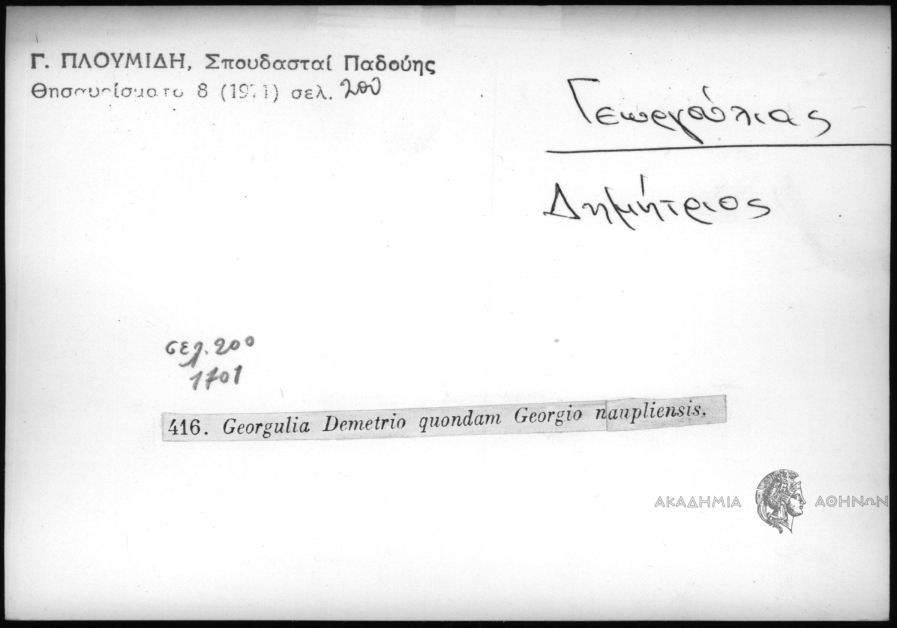 Γ. ΠΛΟΥΜΙΔΗ, Σπουδασταί Παδούης
Θησαυρίσματα 8 (1971) σελ. 200
Γεωργούλιας
Δημήτριος
σελ. 200
1701
416. Georgulia Demetrio quondam Georgio naupliensis.
ΑΚΑΔΗΜΙΑ ΑΘΗΝΩΝ